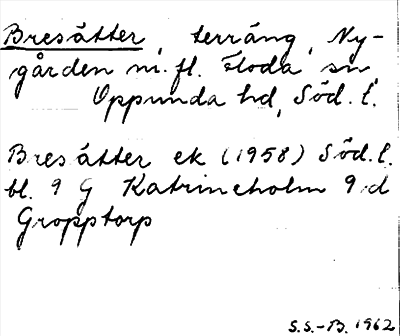 Bresätter, terräng, Ny-
gården m.fl. Floda sn,
Oppunda hd, Söd. l.
Bresätter ek (1958) Söd. l.
bl. 9 G Katrineholm 9 d
Gropptorp
S.S.-B. 1962